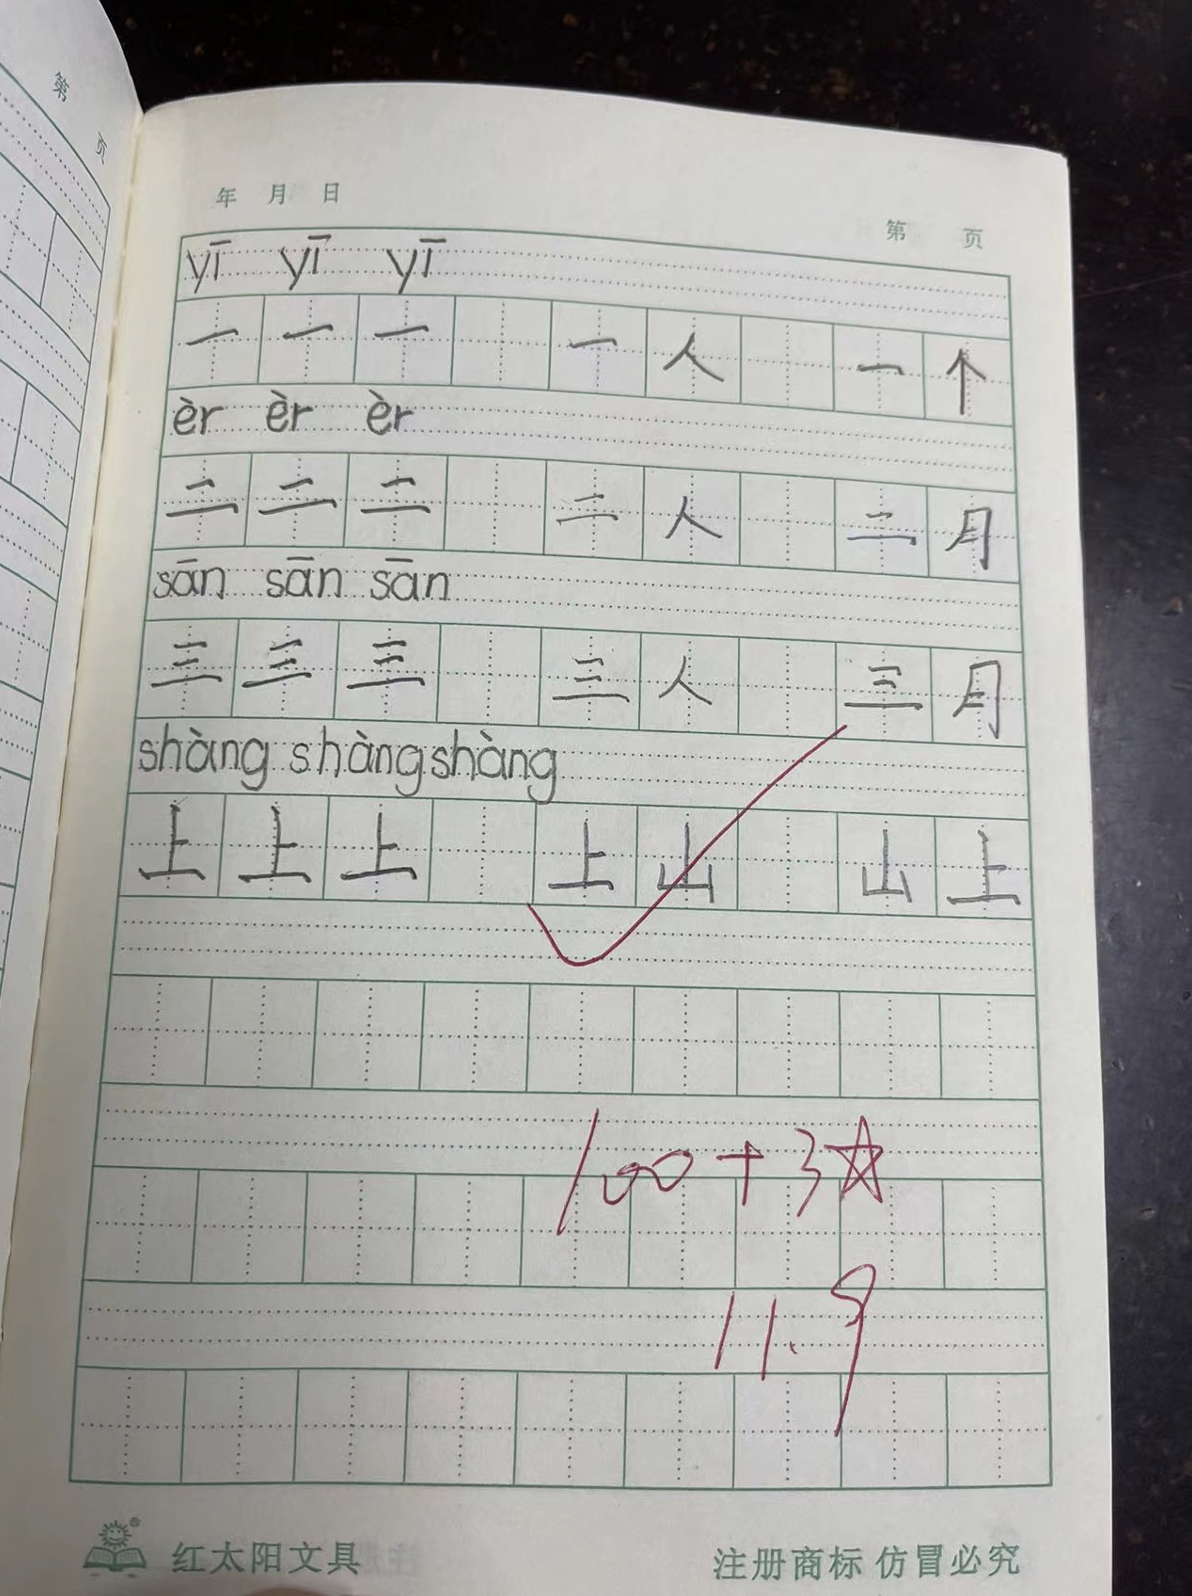 第 页
年 月 日
第 页
yī yī yī
一 一 一 一 人 一 个
èr èr èr
二 二 二 二 人 二 月
sān sān sān
三 三 三 三 人 三 月
shàng shàng shàng
上 上 上 上 山 山 上
100+3☆
11.9
红太阳文具
注册商标 仿冒必究